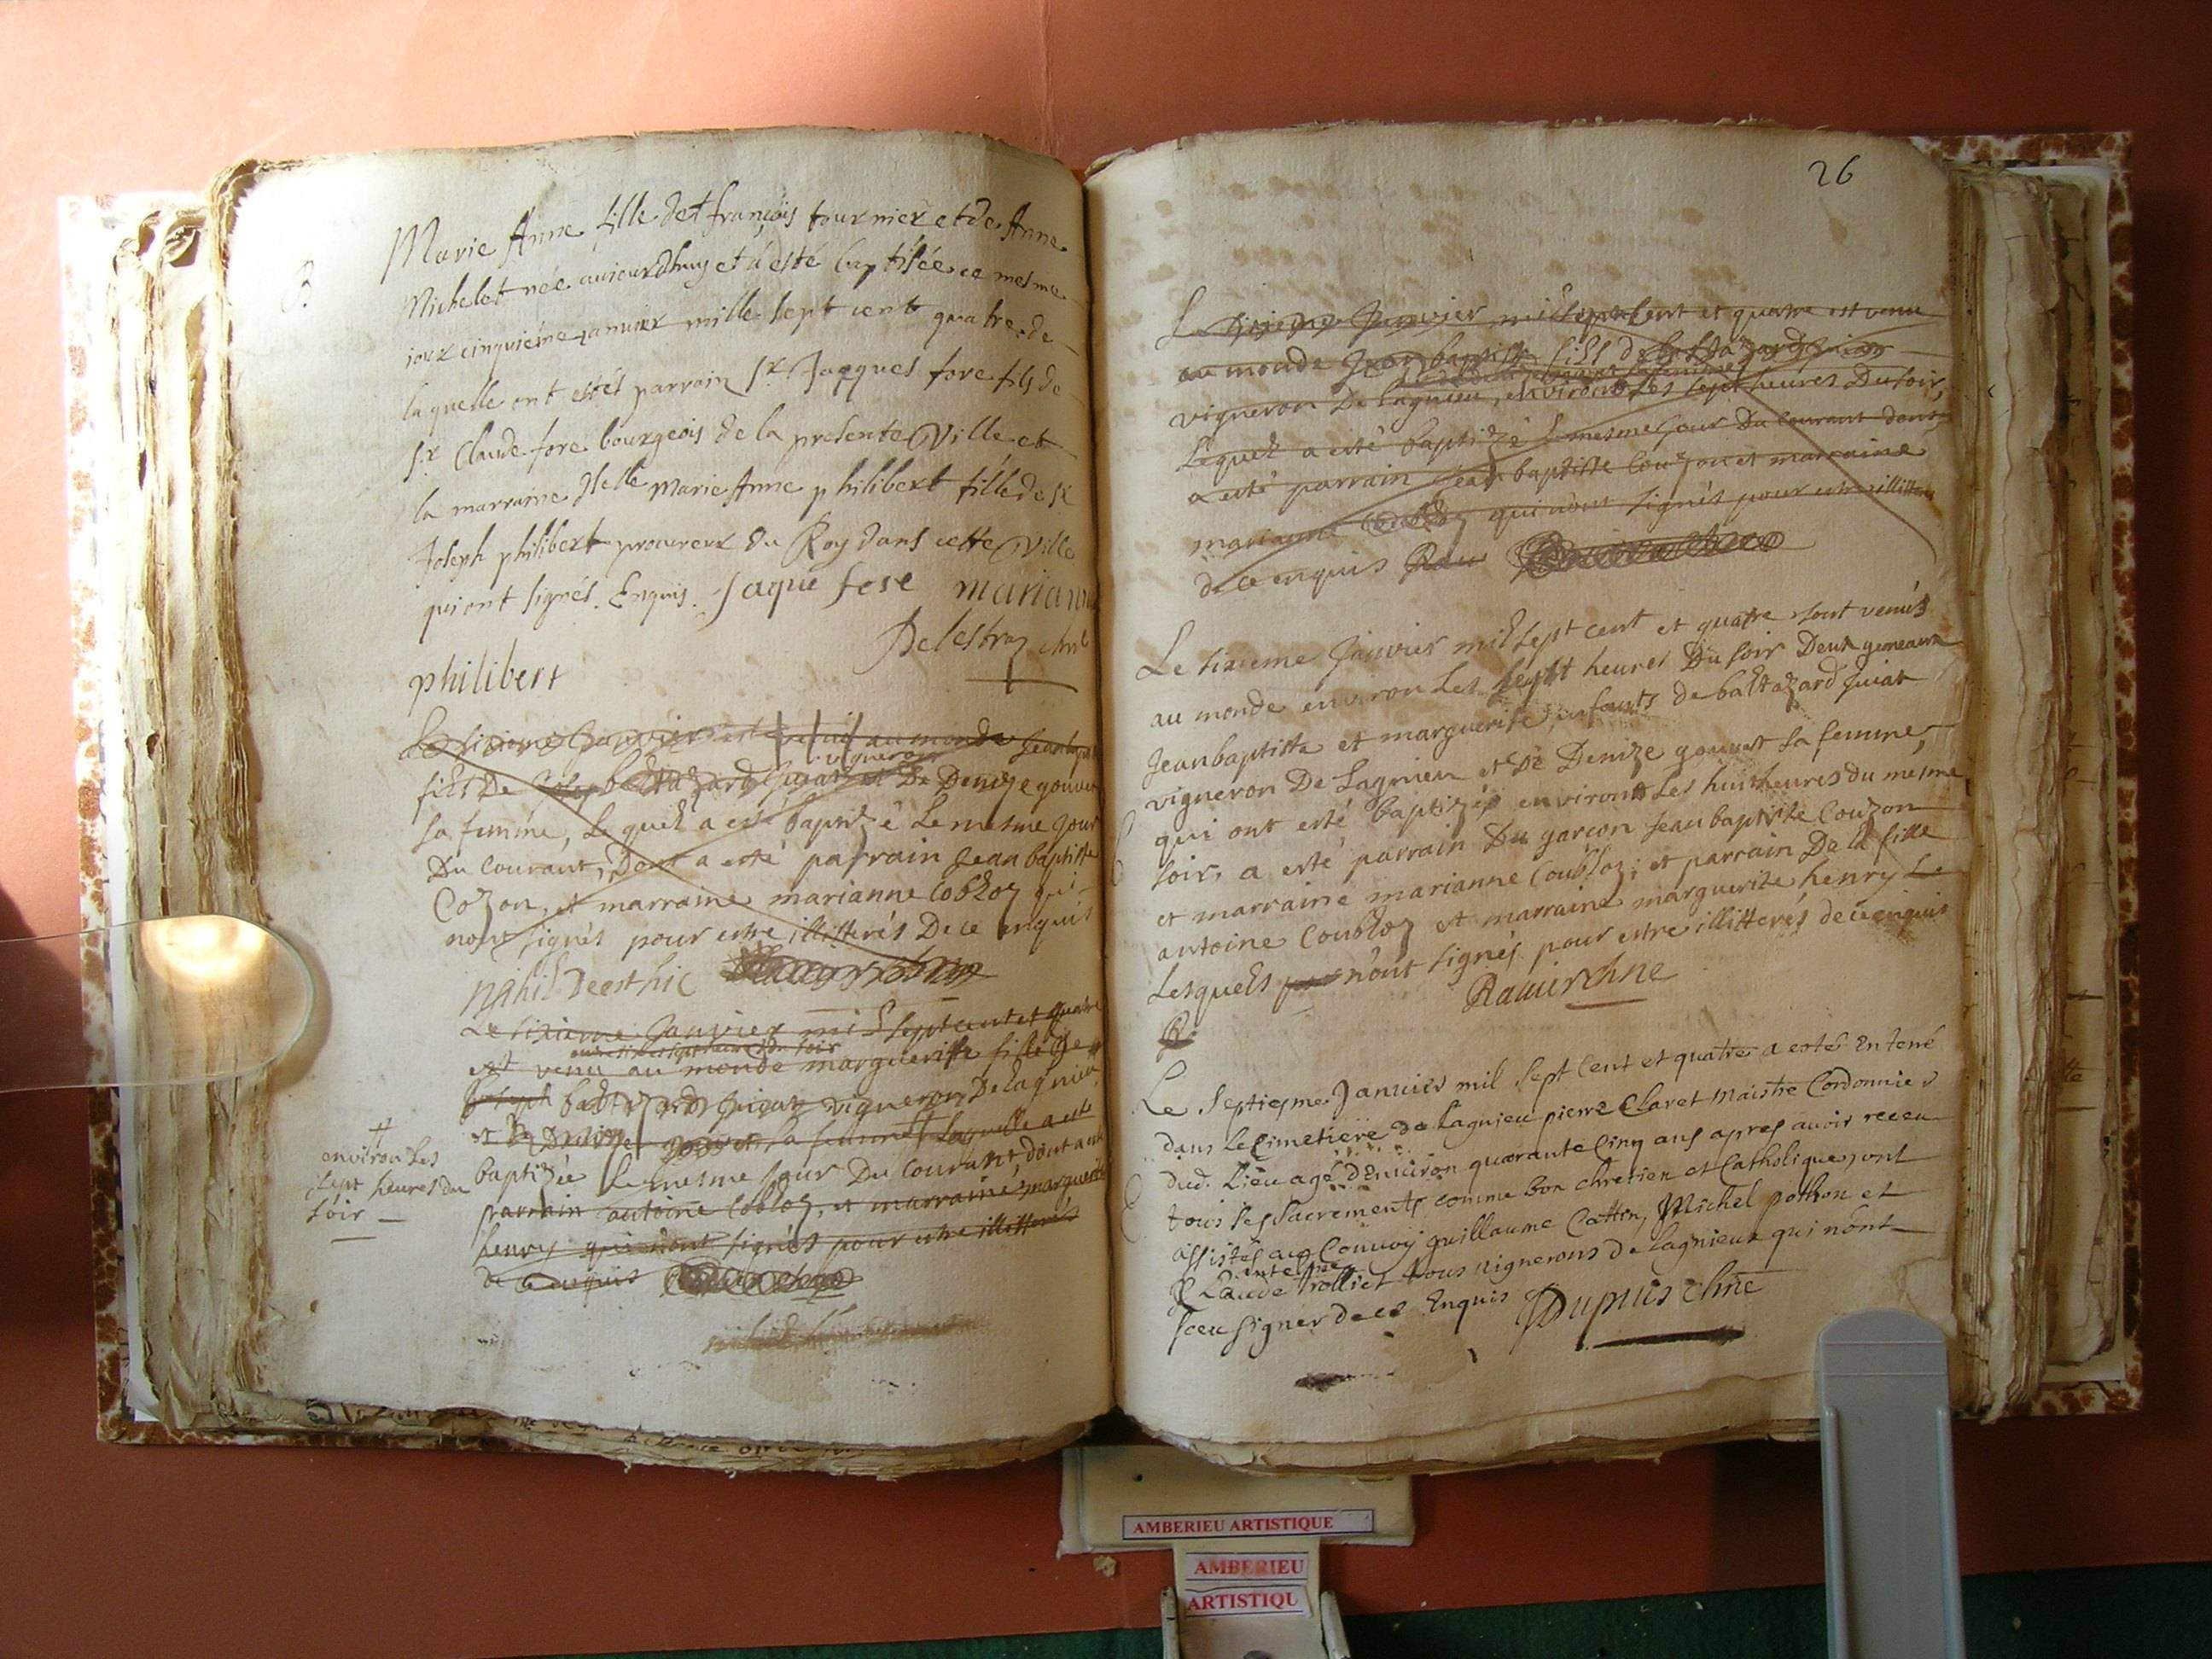 Marie Anne fille de françois tournier et de Anne
Michelet née aujourdhuy et a esté baptisée ce mesme
jour cinquiéme janvier mille sept cent quatre de
laquelle ont estés parrain sr Jacques fore fils de
sr Claude fore bourgeois de la presente Ville et
la marraine dlle Marie Anne philibert fille de sr
Joseph philibert procureur du Roy dans cette Ville
qui ont signés. Enquis. Jaque fore mariann
Delestraz
philibert
Le sixieme Janvier est au monde Jeanbap
vigneron
fils De baltazard Juiat et De Denize gouvet
sa femme, Lequel a esté baptizé Le mesme jour
Du Courant, Dont a esté parrain Jean baptiste
Cozon, et marraine marianne Cobloz qui
nont signés pour estre illitterés De ce enquis
Nihil Deest hic
Le sixieme Janvier mil sept cent et quatre
environ Les sept heures Du soir
est venu au monde margueritte fille De
Joseph baltazard Juiat vigneron De Lagnieu
et De Denize gouvet sa femme Laquelle a esté
environ Les
sept heures du
soir
baptizée Le mesme jour Du Courant, dont a esté
parrain antoine Cobloz, et marraine marguerite
henry qui nont signés pour estre illitterés
de ce enquis
26
Le sixieme Janvier mil sept Cent et quatre est venu
au monde Jean baptiste fils de baltazard Juiat
vigneron De Lagnieu, environ Les sept heures Du soir,
Lequel a esté baptizé Le mesme jour Du Courant dont
a esté parrain Jean baptiste Couzon et marraine
marianne Coubloz qui nont signés pour estre illitterés
de ce enquis
Le sixieme Janvier mil sept cent et quatre sont venus
au monde environ Les sept heures Du soir Deux gemeaux
Jeanbaptiste et marguerite, enfants de baltazard Juiat
vigneron De Lagnieu et De Denize gouvet sa femme,
qui ont esté baptizés environ Les huit heures du mesme
soir, a esté parrain Du garcon Jean baptiste Couzon
et marraine marianne Coubloz; et parrain De la fille
antoine Coubloz et marraine marguerite henry Le
Lesquels n'ont signés pour estre illitterés de ce enquis
Ravier chne
Le Septiesme Januier mil sept Cent et quatre a esté Enterré
dans le Cimetiere de Lagnieu pierre Claret Maistre Cordonnier
dud. Lieu agé d'Enuiron quarante Cinq ans apres auoir receu
tous les Sacrements comme bon chretien et Catholique, ont
assistés au Conuoy guillaume Cattin, Michel pothon et
Claude trolliet tous uignerons de Lagnieu qui nont
sceu signer de ce Enquis Dupuis chne
AMBERIEU ARTISTIQUE
AMBERIEU
ARTISTIQU